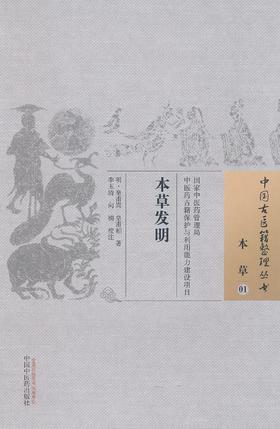 中国古医籍整理丛书
本草
01
国家中医药管理局
中医药古籍保护与利用能力建设项目
本草发明
明·皇甫嵩 皇甫相 著
李玉清 向楠 校注
中国中医药出版社